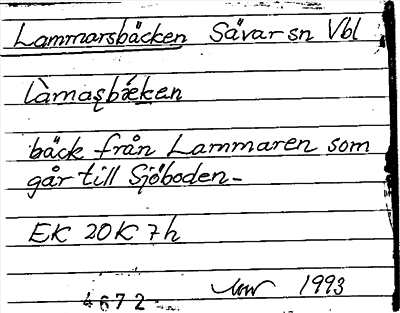 Lammarsbäcken Sävar sn Vbl
làmaʂbǽkən
bäck från Lammaren som
går till Sjöboden–
EK 20K 7h
1993
4672